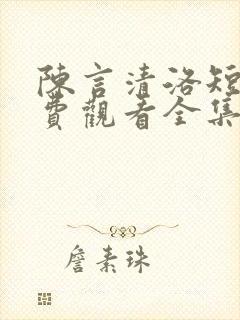 陳言清洛短
費觀看全集
詹素珠